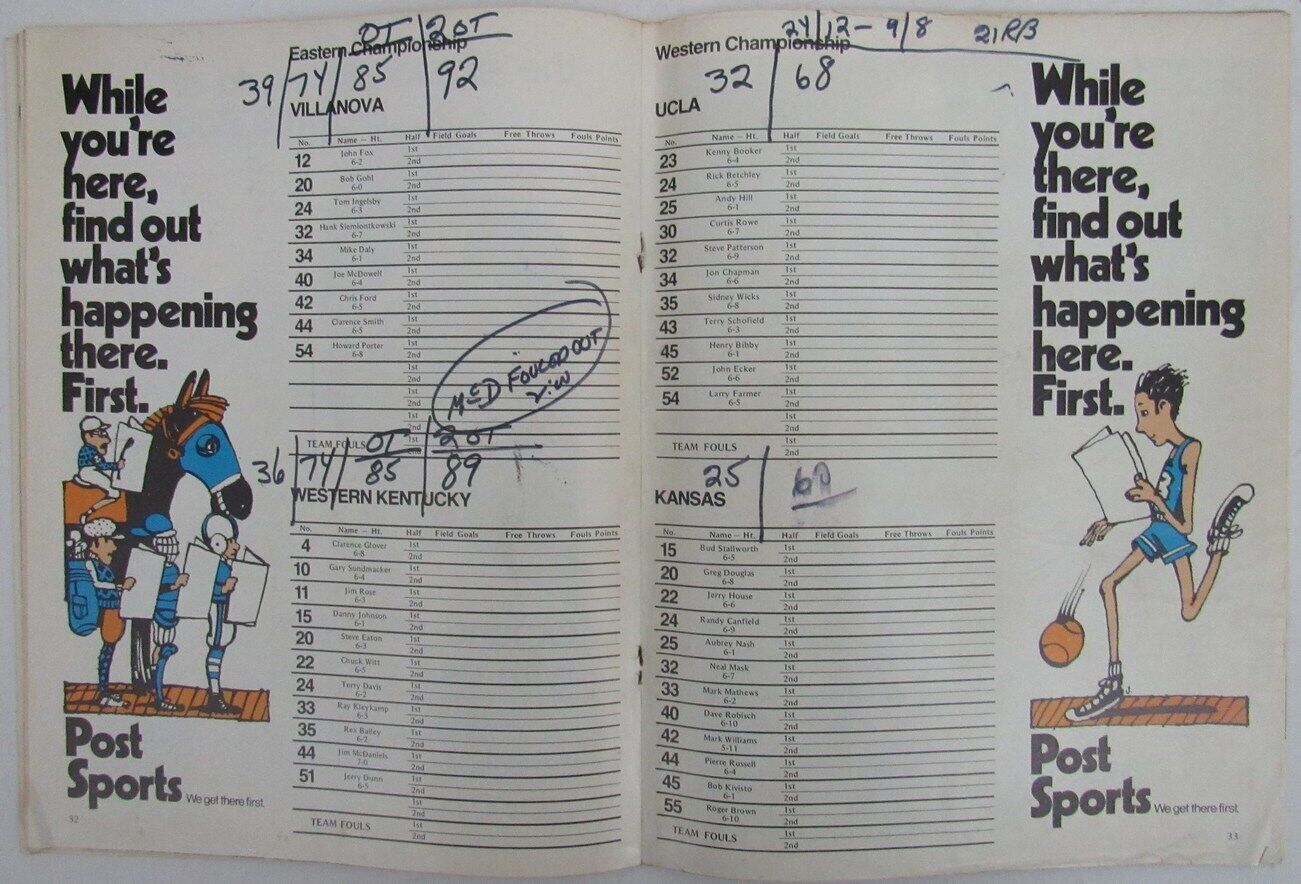 While
you're
here,
find out
what's
happening
there.
First.
Post
Sports
We get there first.
32
OT 2 OT
Eastern Championship
39 74 85 92
VILLANOVA
No. Name — Ht. Half Field Goals Free Throws Fouls Points
12 John Fox 1st
6-2 2nd
20 Bob Gohl 1st
6-0 2nd
24 Tom Ingelsby 1st
6-3 2nd
32 Hank Siemiontkowski 1st
6-7 2nd
34 Mike Daly 1st
6-1 2nd
40 Joe McDowell 1st
6-4 2nd
42 Chris Ford 1st
6-5 2nd
44 Clarence Smith 1st
6-5 2nd
54 Howard Porter 1st
6-8 2nd
1st
2nd
1st
2nd
1st
2nd
McD FOULED OUT
TEAM FOULS 1st
OT 2 OT
36 74 85 89
WESTERN KENTUCKY
No. Name — Ht. Half Field Goals Free Throws Fouls Points
4 Clarence Glover 1st
6-8 2nd
10 Gary Sundmacker 1st
6-4 2nd
11 Jim Rose 1st
6-3 2nd
15 Danny Johnson 1st
6-1 2nd
20 Steve Eaton 1st
6-3 2nd
22 Chuck Witt 1st
6-5 2nd
24 Terry Davis 1st
6-2 2nd
33 Ray Kleykamp 1st
6-3 2nd
35 Rex Bailey 1st
6-2 2nd
44 Jim McDaniels 1st
7-0 2nd
51 Jerry Dunn 1st
6-5 2nd
1st
2nd
TEAM FOULS 1st
2nd
24/12 - 9/8 21 RB
Western Championship
32 68
UCLA
No. Name — Ht. Half Field Goals Free Throws Fouls Points
23 Kenny Booker 1st
6-4 2nd
24 Rick Betchley 1st
6-5 2nd
25 Andy Hill 1st
6-1 2nd
30 Curtis Rowe 1st
6-7 2nd
32 Steve Patterson 1st
6-9 2nd
34 Jon Chapman 1st
6-6 2nd
35 Sidney Wicks 1st
6-8 2nd
43 Terry Schofield 1st
6-3 2nd
45 Henry Bibby 1st
6-1 2nd
52 John Ecker 1st
6-6 2nd
54 Larry Farmer 1st
6-5 2nd
1st
2nd
TEAM FOULS 1st
2nd
25 60
KANSAS
No. Name — Ht. Half Field Goals Free Throws Fouls Points
15 Bud Stallworth 1st
6-5 2nd
20 Greg Douglas 1st
6-8 2nd
22 Jerry House 1st
6-6 2nd
24 Randy Canfield 1st
6-9 2nd
25 Aubrey Nash 1st
6-1 2nd
32 Neal Mask 1st
6-7 2nd
33 Mark Mathews 1st
6-2 2nd
40 Dave Robisch 1st
6-10 2nd
42 Mark Williams 1st
5-11 2nd
44 Pierre Russell 1st
6-4 2nd
45 Bob Kivisto 1st
6-1 2nd
55 Roger Brown 1st
6-10 2nd
TEAM FOULS 1st
2nd
While
you're
there,
find out
what's
happening
here.
First.
Post
Sports
We get there first.
33